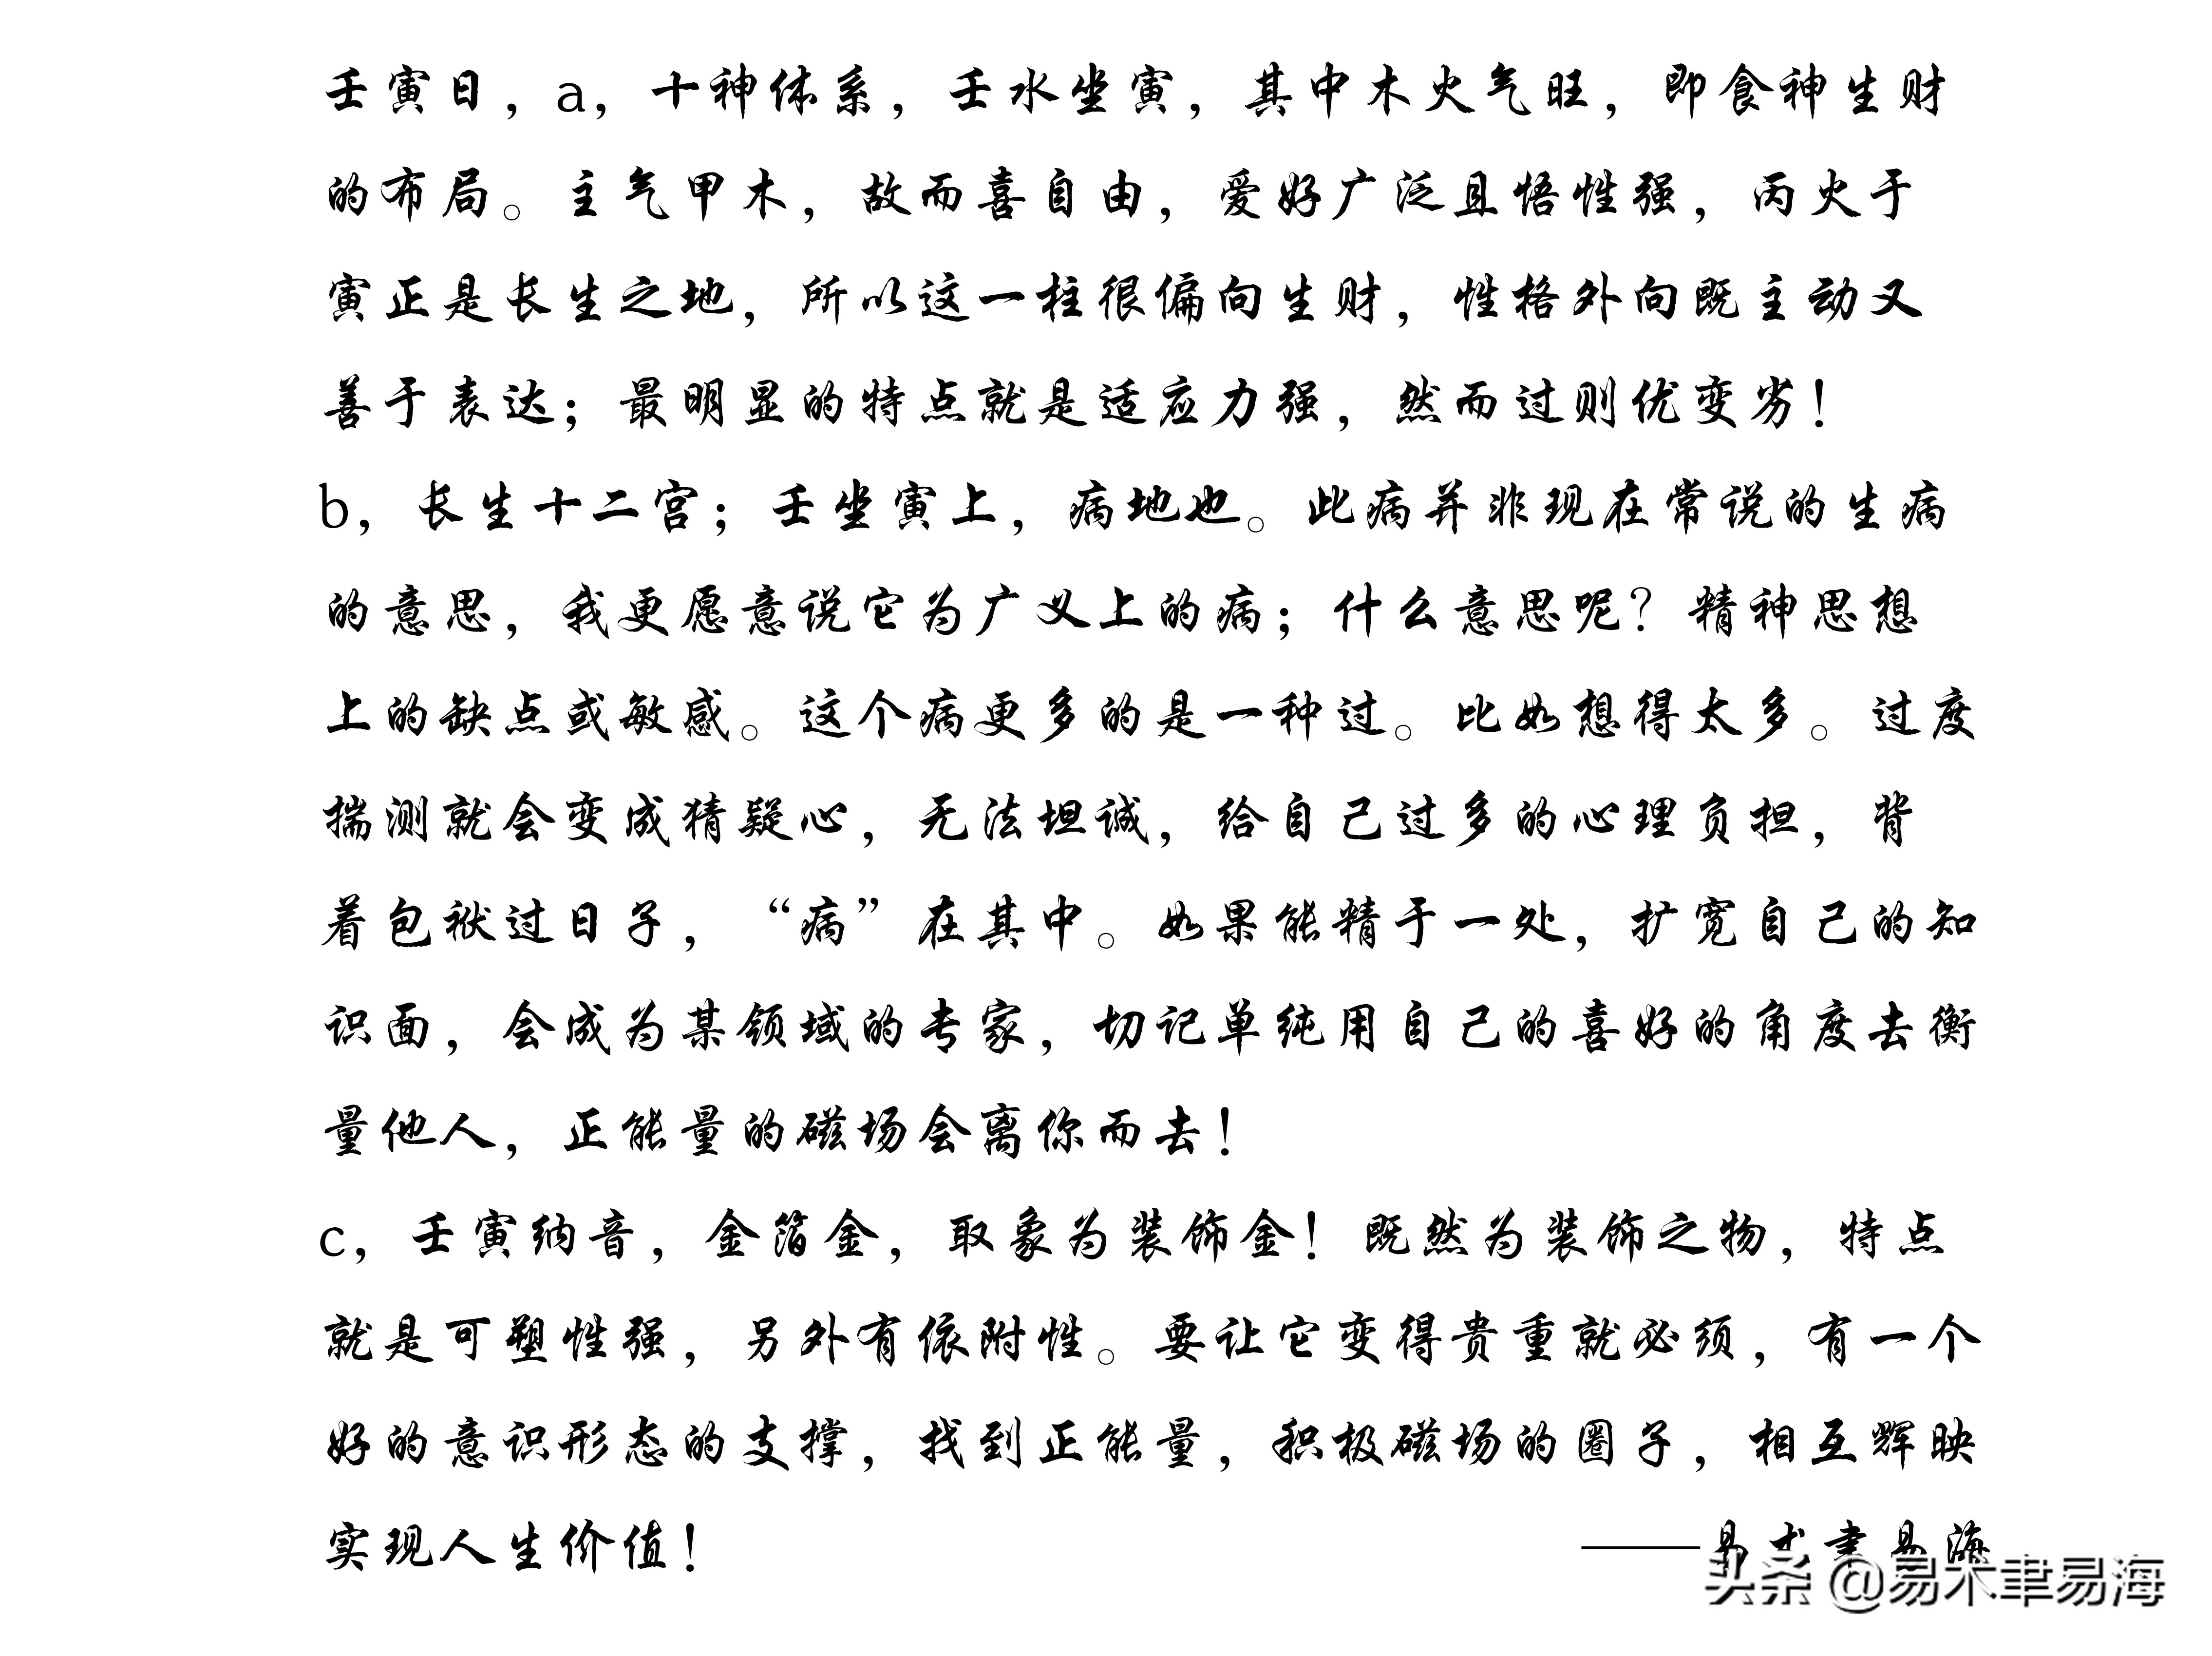 壬寅日，a，十神体系，壬水坐寅，其中木火气旺，即食神生财
的布局。主气甲木，故而喜自由，爱好广泛且悟性强，丙火于
寅正是长生之地，所以这一柱很偏向生财，性格外向既主动又
善于表达；最明显的特点就是适应力强，然而过则优变劣！
b，长生十二宫；壬坐寅上，病地也。此病并非现在常说的生病
的意思，我更愿意说它为广义上的病；什么意思呢？精神思想
上的缺点或敏感。这个病更多的是一种过。比如想得太多。过度
揣测就会变成猜疑心，无法坦诚，给自己过多的心理负担，背
着包袱过日子，“病”在其中。如果能精于一处，扩宽自己的知
识面，会成为某领域的专家，切记单纯用自己的喜好的角度去衡
量他人，正能量的磁场会离你而去！
c，壬寅纳音，金箔金，取象为装饰金！既然为装饰之物，特点
就是可塑性强，另外有依附性。要让它变得贵重就必须，有一个
好的意识形态的支撑，找到正能量，积极磁场的圈子，相互辉映
实现人生价值！ ——易术聿易海
头条 @易术聿易海